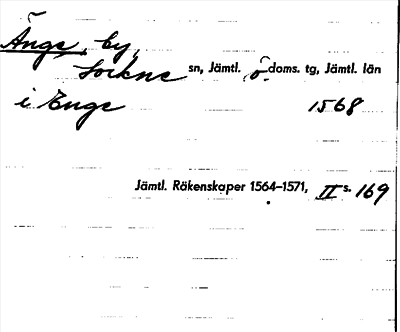 Änge, by,
Lockne sn, Jämtl. ö doms. tg, Jämtl. län
i Enge 1568
Jämtl. Räkenskaper 1564–1571, II s. 169